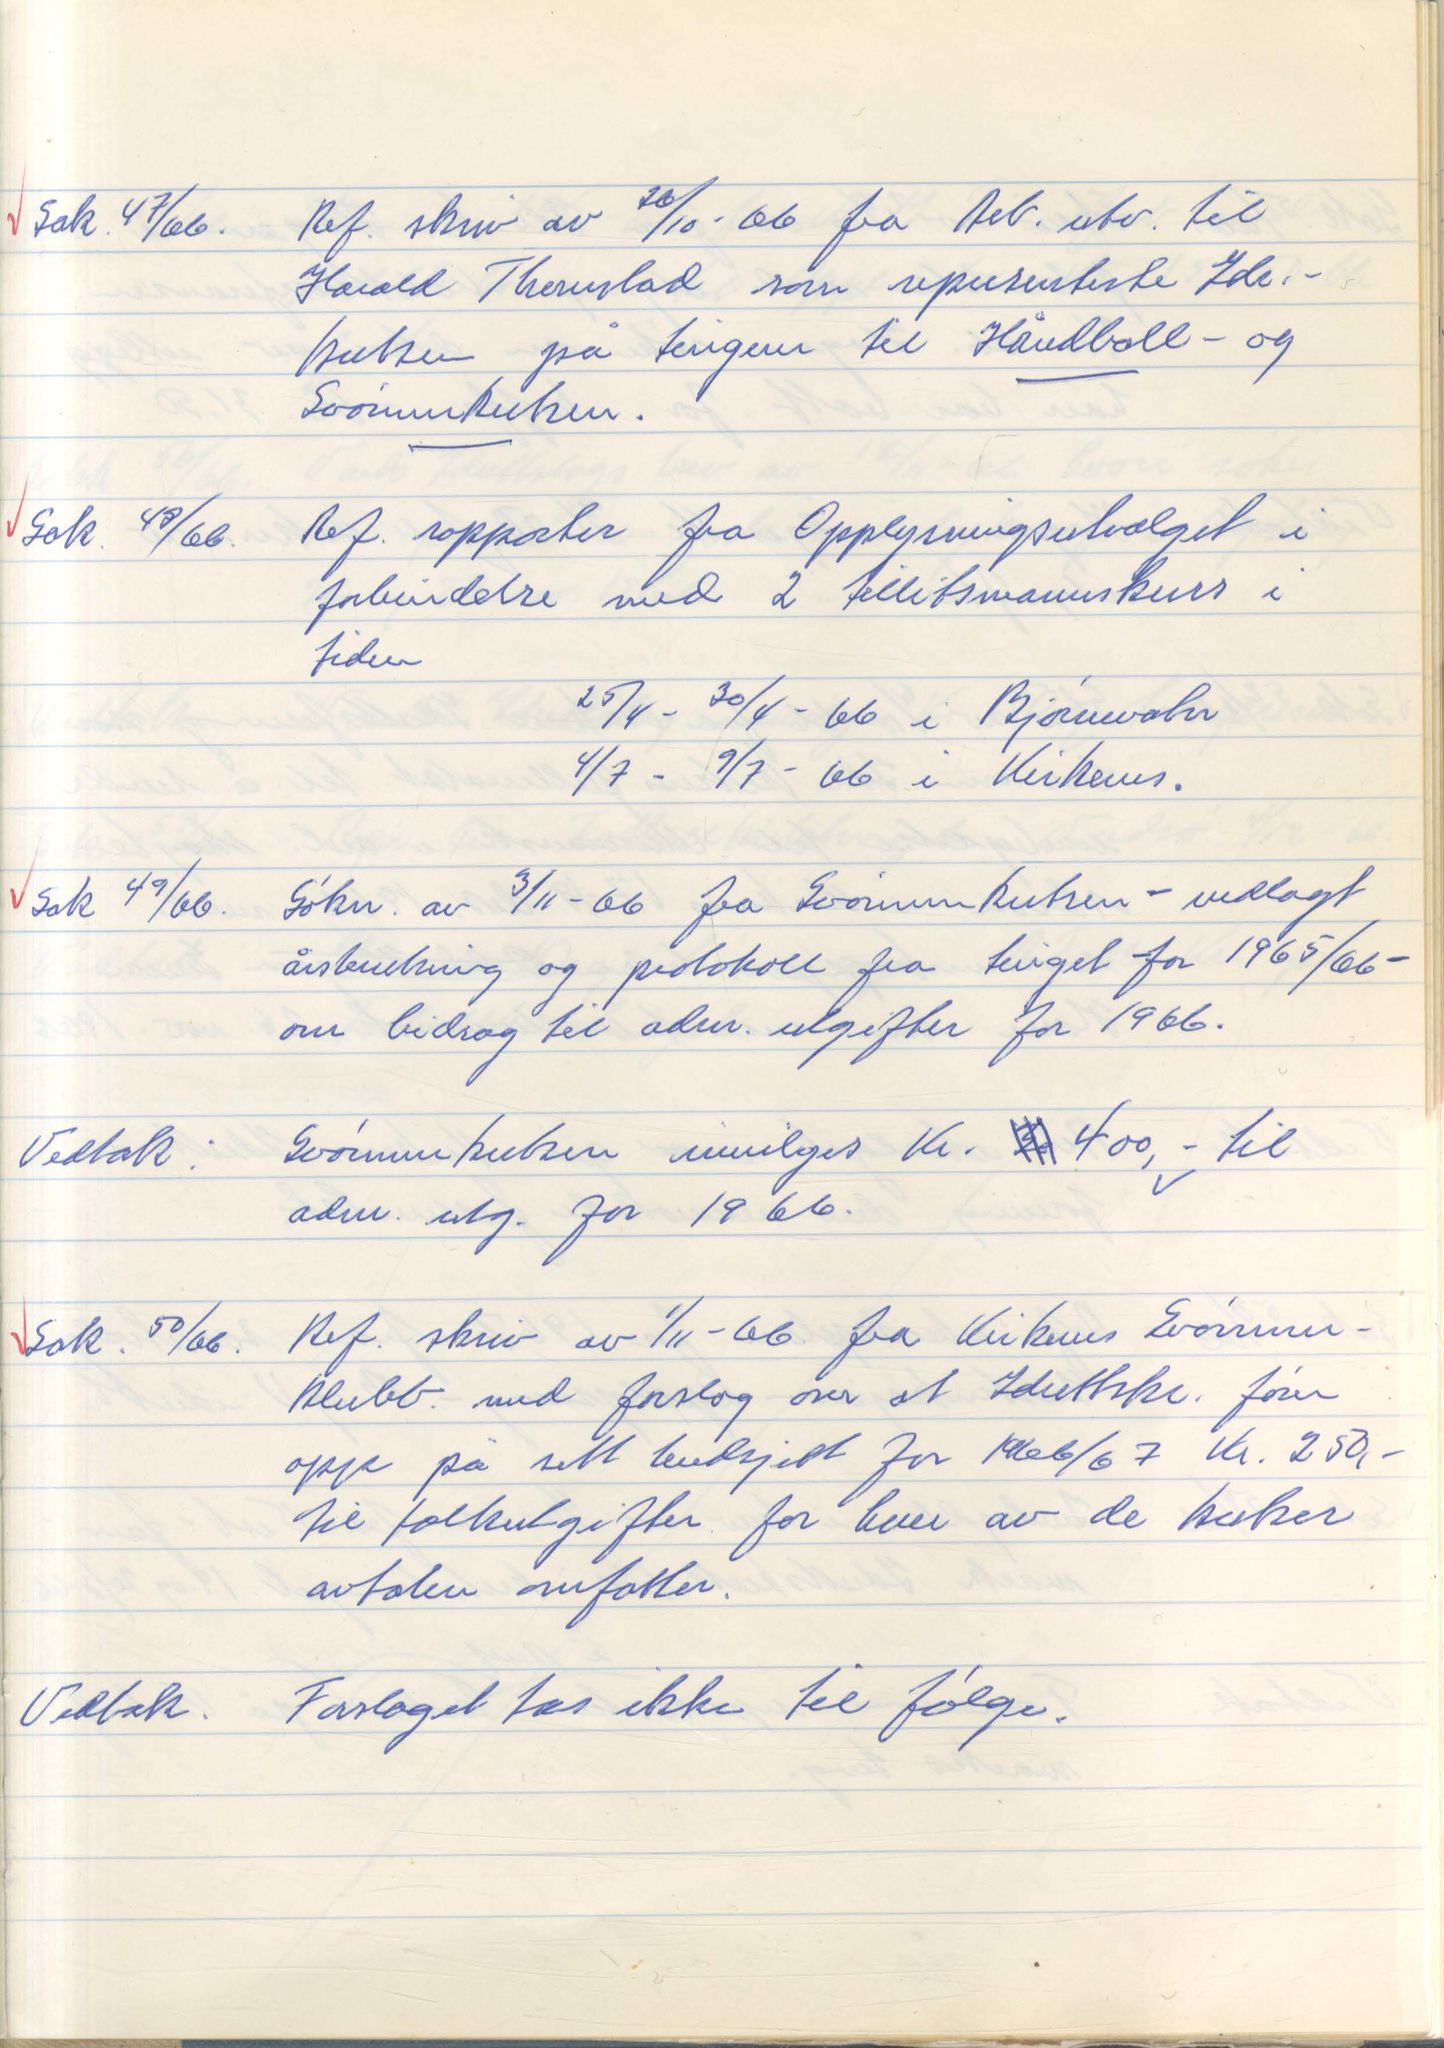 Sak. 47/66. Ref. skriv av 26/10-66 fra Arb. utv. til
Harald Thornstad som representerte Idr.-
kretsen på tingene til Håndball- og
Svømmekretsen.
Sak. 48/66. Ref. rapporter fra Opplysningsutvalget i
forbindelse med 2 tillitsmannskurs i
tiden
25/4 - 30/4 - 66 i Bjørnevatn
4/7 - 9/7 - 66 i Kirkenes.
Sak 49/66. Søkn. av 3/11-66 fra Svømmekretsen - vedlagt
årsberetning og protokoll fra tinget for 1965/66-
om bidrag til adm. utgifter for 1966.
Vedtak: Svømmekretsen innvilges Kr. 400,- til
adm. utg. for 1966.
Sak. 50/66. Ref. skriv av 1/11-66 fra Kirkenes Svømme-
klubb med forslag over at Idrettskr. fører
opp på sitt budsjett for 1966/67 Kr. 250,-
til tolkutgifter for hver av de kretser
avtalen omfatter.
Vedtak. Forslaget tas ikke til følge.